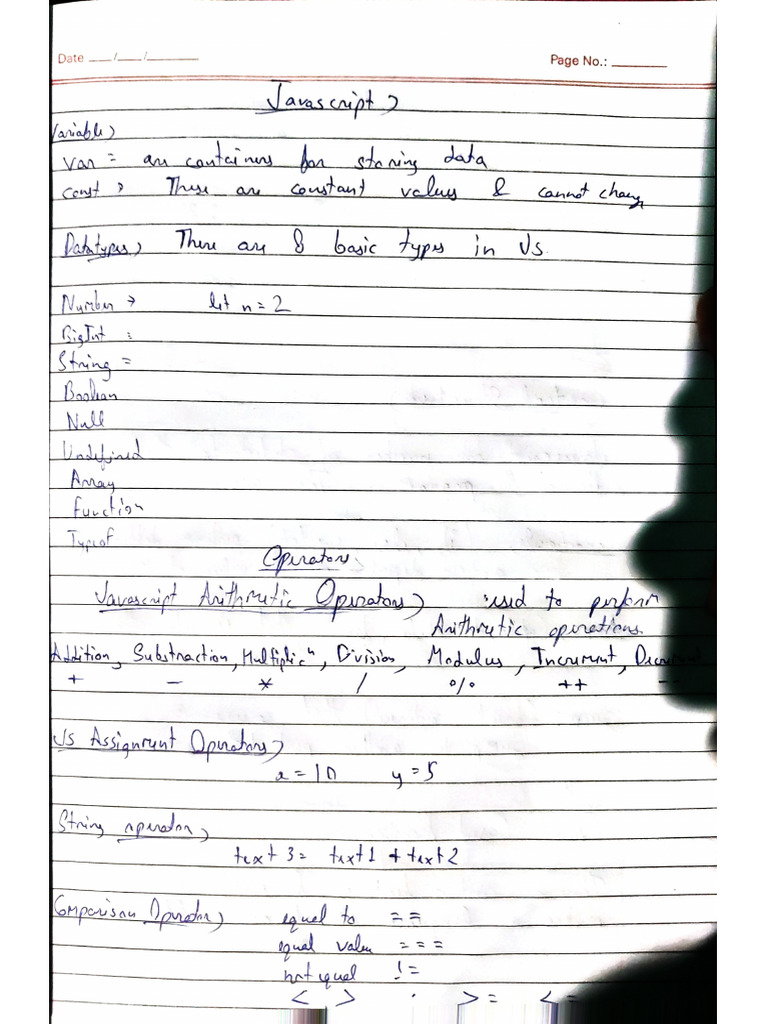 Date __/__/____ Page No.: ______
Javascript
Variable
var = are containers for storing data
const → These are constant values & cannot change
Datatypes There are 8 basic types in Js.
Number → let n = 2
BigInt :
String =
Boolean
Null
Undefined
Array
function
Typeof
Operators
Javascript Arithmetic Operators used to perform
Arithmetic operations.
Addition, Substraction, Multiplicn, Division, Modulus, Increment, Decrement
+ - * / % ++ --
Js Assignment Operators
x = 10 y = 5
String operator
text 3 = text 1 + text 2
Comparison Operator equal to ==
equal value ===
not equal !=
< > >= <=